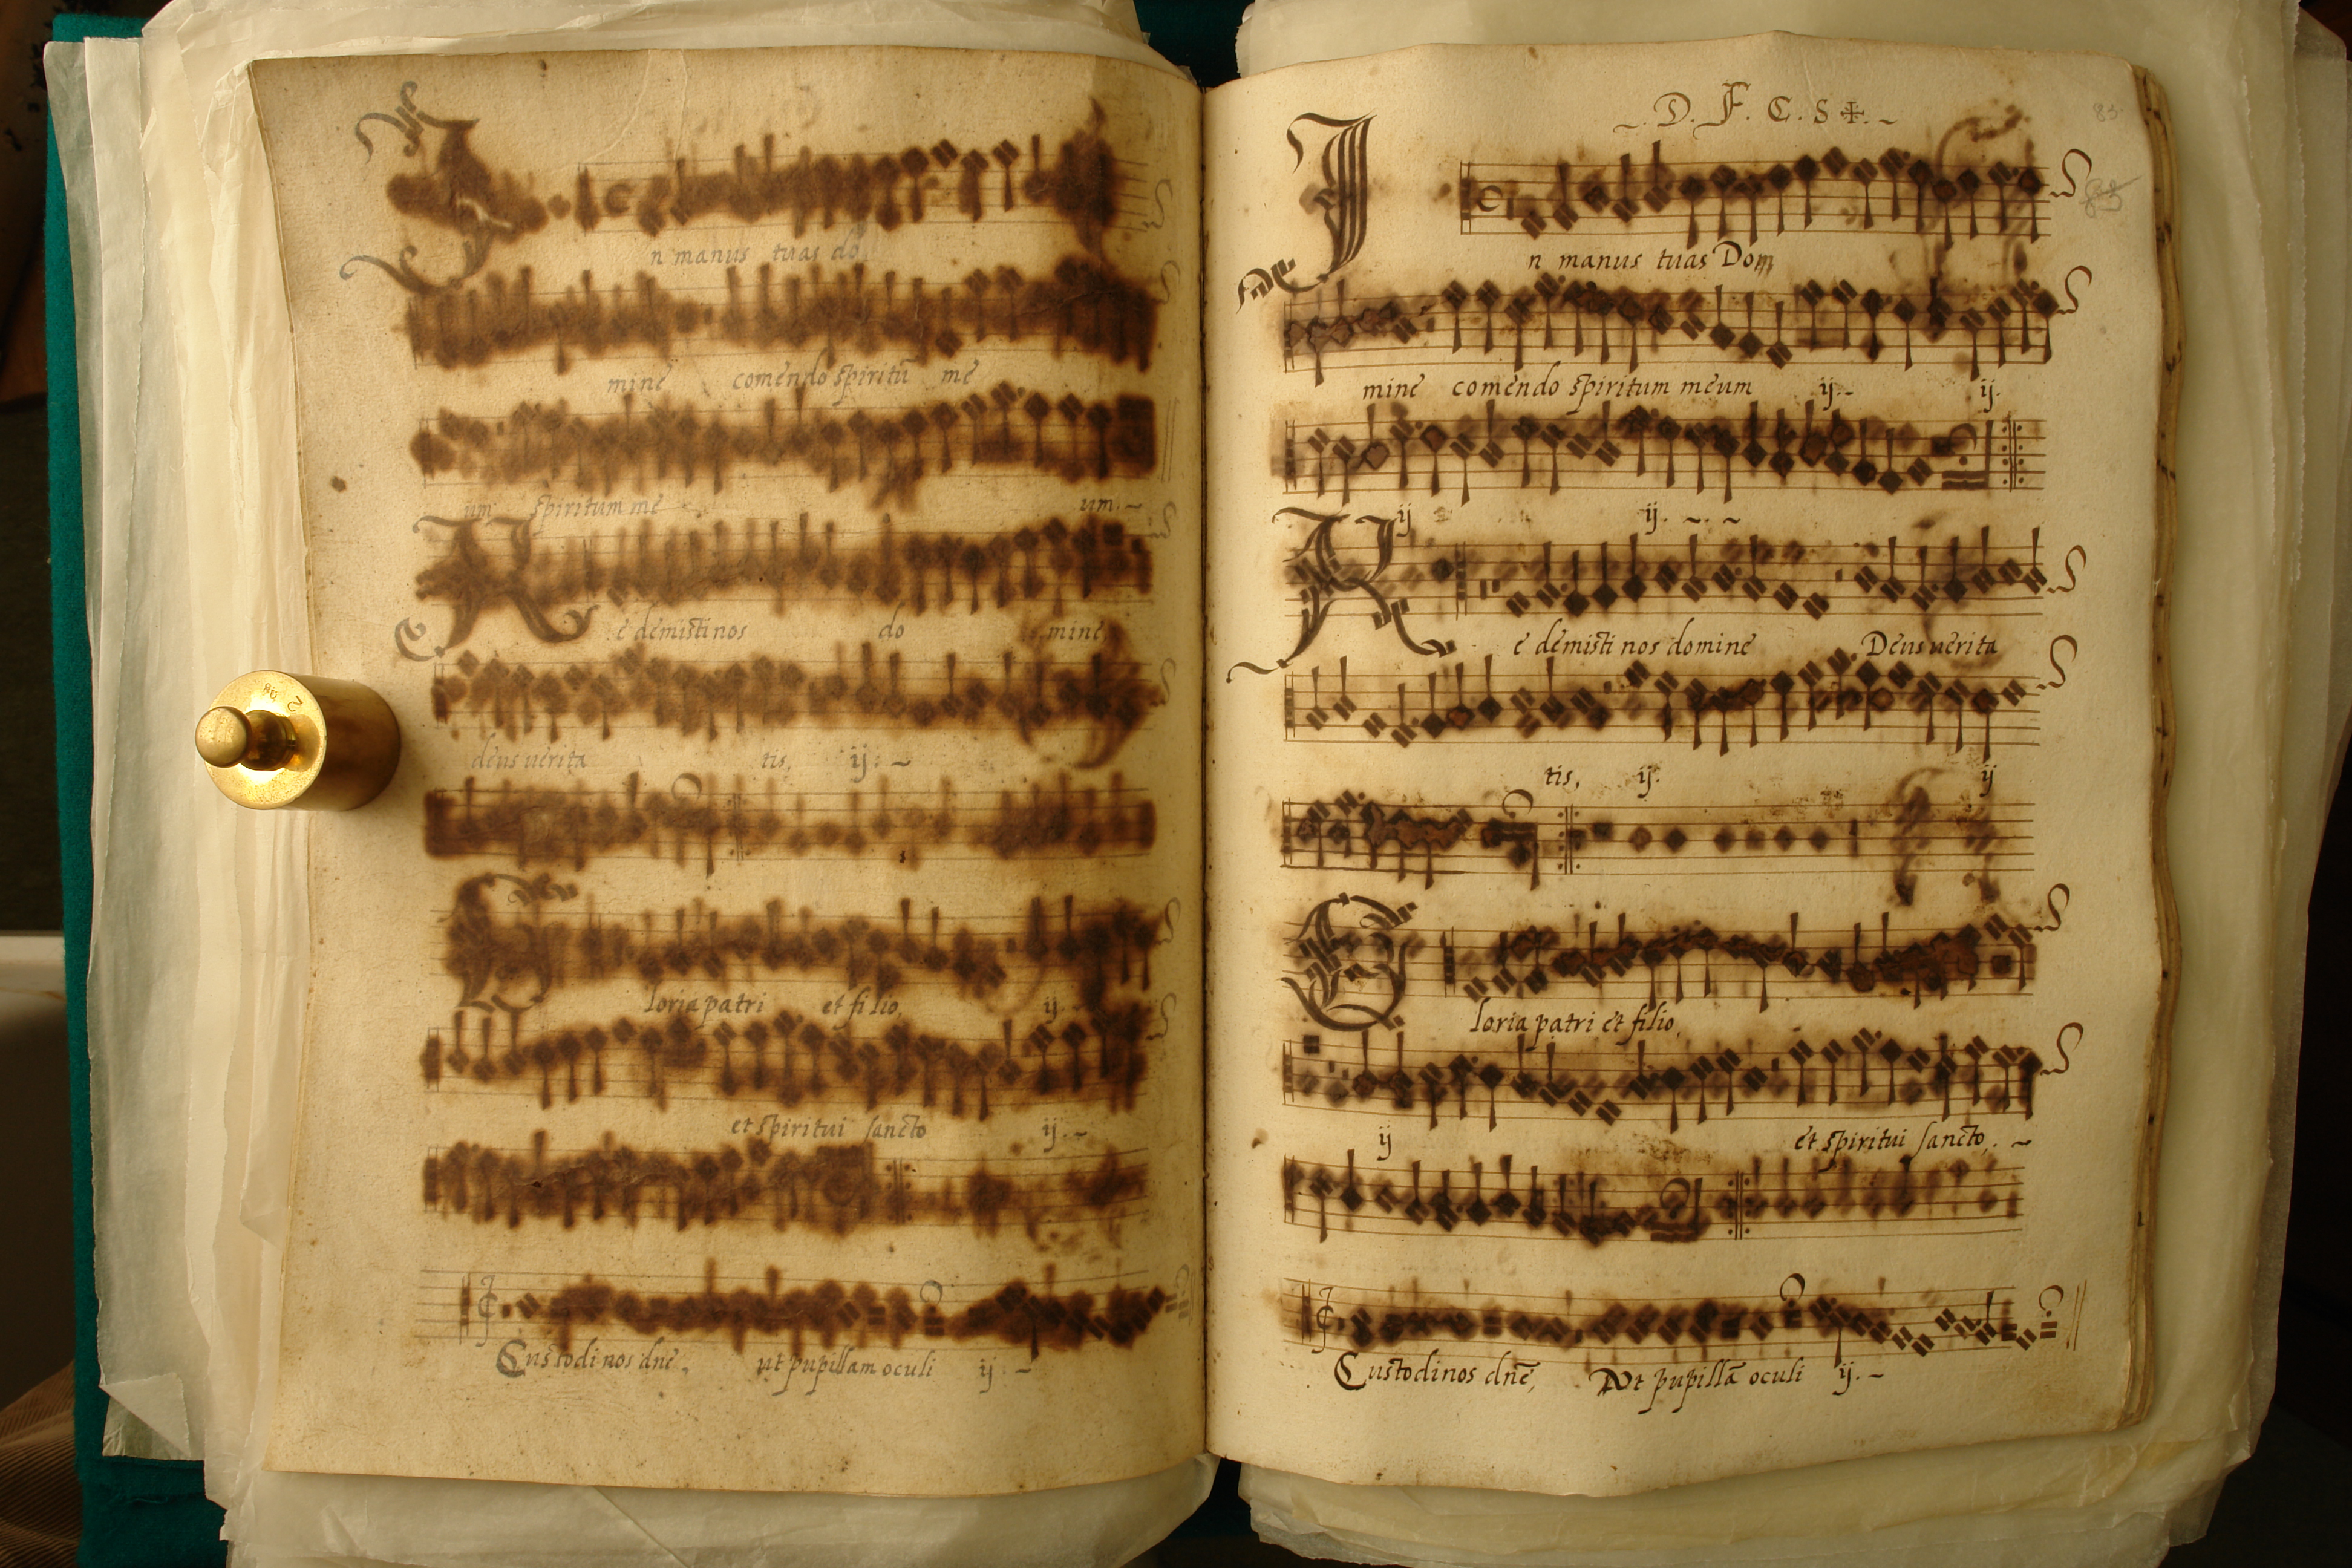 In manus tuas do
mine comendo spiritū me
um spiritum me um.
Redemisti nos do mine,
deus verita tis, ij.
Gloria patri et filio, ij.
et spiritui sancto ij.
Custodi nos dne, ut pupillam oculi ij.
D. F. C. S
83
In manus tuas Dom
mine comendo spiritum meum ij. ij.
ij ij.
Redemisti nos domine Deus verita
tis, ij. ij
Gloria patri et filio,
ij et spiritui sancto,.
Custodi nos dnē, Ut pupillā oculi ij.